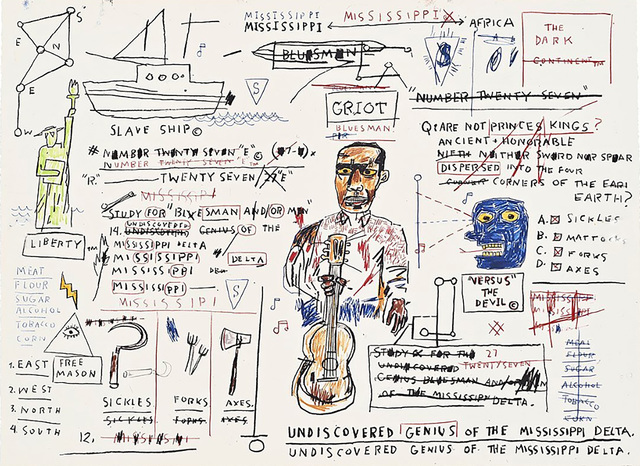 MISSISSIPPI
MISSISSIPPI
MISSISSIPPI
AFRICA
S
E
N
E
W
BLUESMAN
A B
THE
DARK
CONTINENT™
S
GRIOT
BLUESMAN!
"NUMBER TWENTY SEVEN"
SLAVE SHIP©
Q: ARE NOT PRINCES KINGS?
ANCIENT + HONORABLE
NEITHER SWORD NOR SPEAR
DISPERSED INTO THE FOUR
CORNERS OF THE EARTH
EARTH?
# NUMBER TWENTY SEVEN "E"© (#7-4)
NUMBER TWENTY SEVEN "E"
"R." TWENTY SEVEN "E"
MISSISSIPPI
STUDY FOR BLUESMAN AND/OR MAN
UNDISCOVERED
14. UNDISCOVERED GENIUS OF THE
MISSISSIPPI DELTA
MISSISSIPPI
DELTA
MISSISSIPPI
MISSISSIPPI
S
MISSISSIPPI
LIBERTY™
A. SICKLES
B. MATTOCKS
C. FORKS
D. AXES
"VERSUS"
THE
DEVIL©
MISSISSIPPI
MISSISSIPPI
MEAT
FLOUR
SUGAR
ALCOHOL
TOBACCO
CORN
FREE
MASON
1. EAST
2. WEST
3. NORTH
4. SOUTH
SICKLES
SICKLES
FORKS
FORKS
AXES.
AXES.
12. MISSISSIPPI
STUDY FOR THE 27
UNDISCOVERED TWENTY/SEVEN
GENIUS BLUESMAN AND/OR MAN
OF THE MISSISSIPPI DELTA.
MEAT
FLOUR
SUGAR
ALCOHOL
TOBACCO
CORN
UNDISCOVERED GENIUS OF THE MISSISSIPPI DELTA.
UNDISCOVERED GENIUS OF THE MISSISSIPPI DELTA.